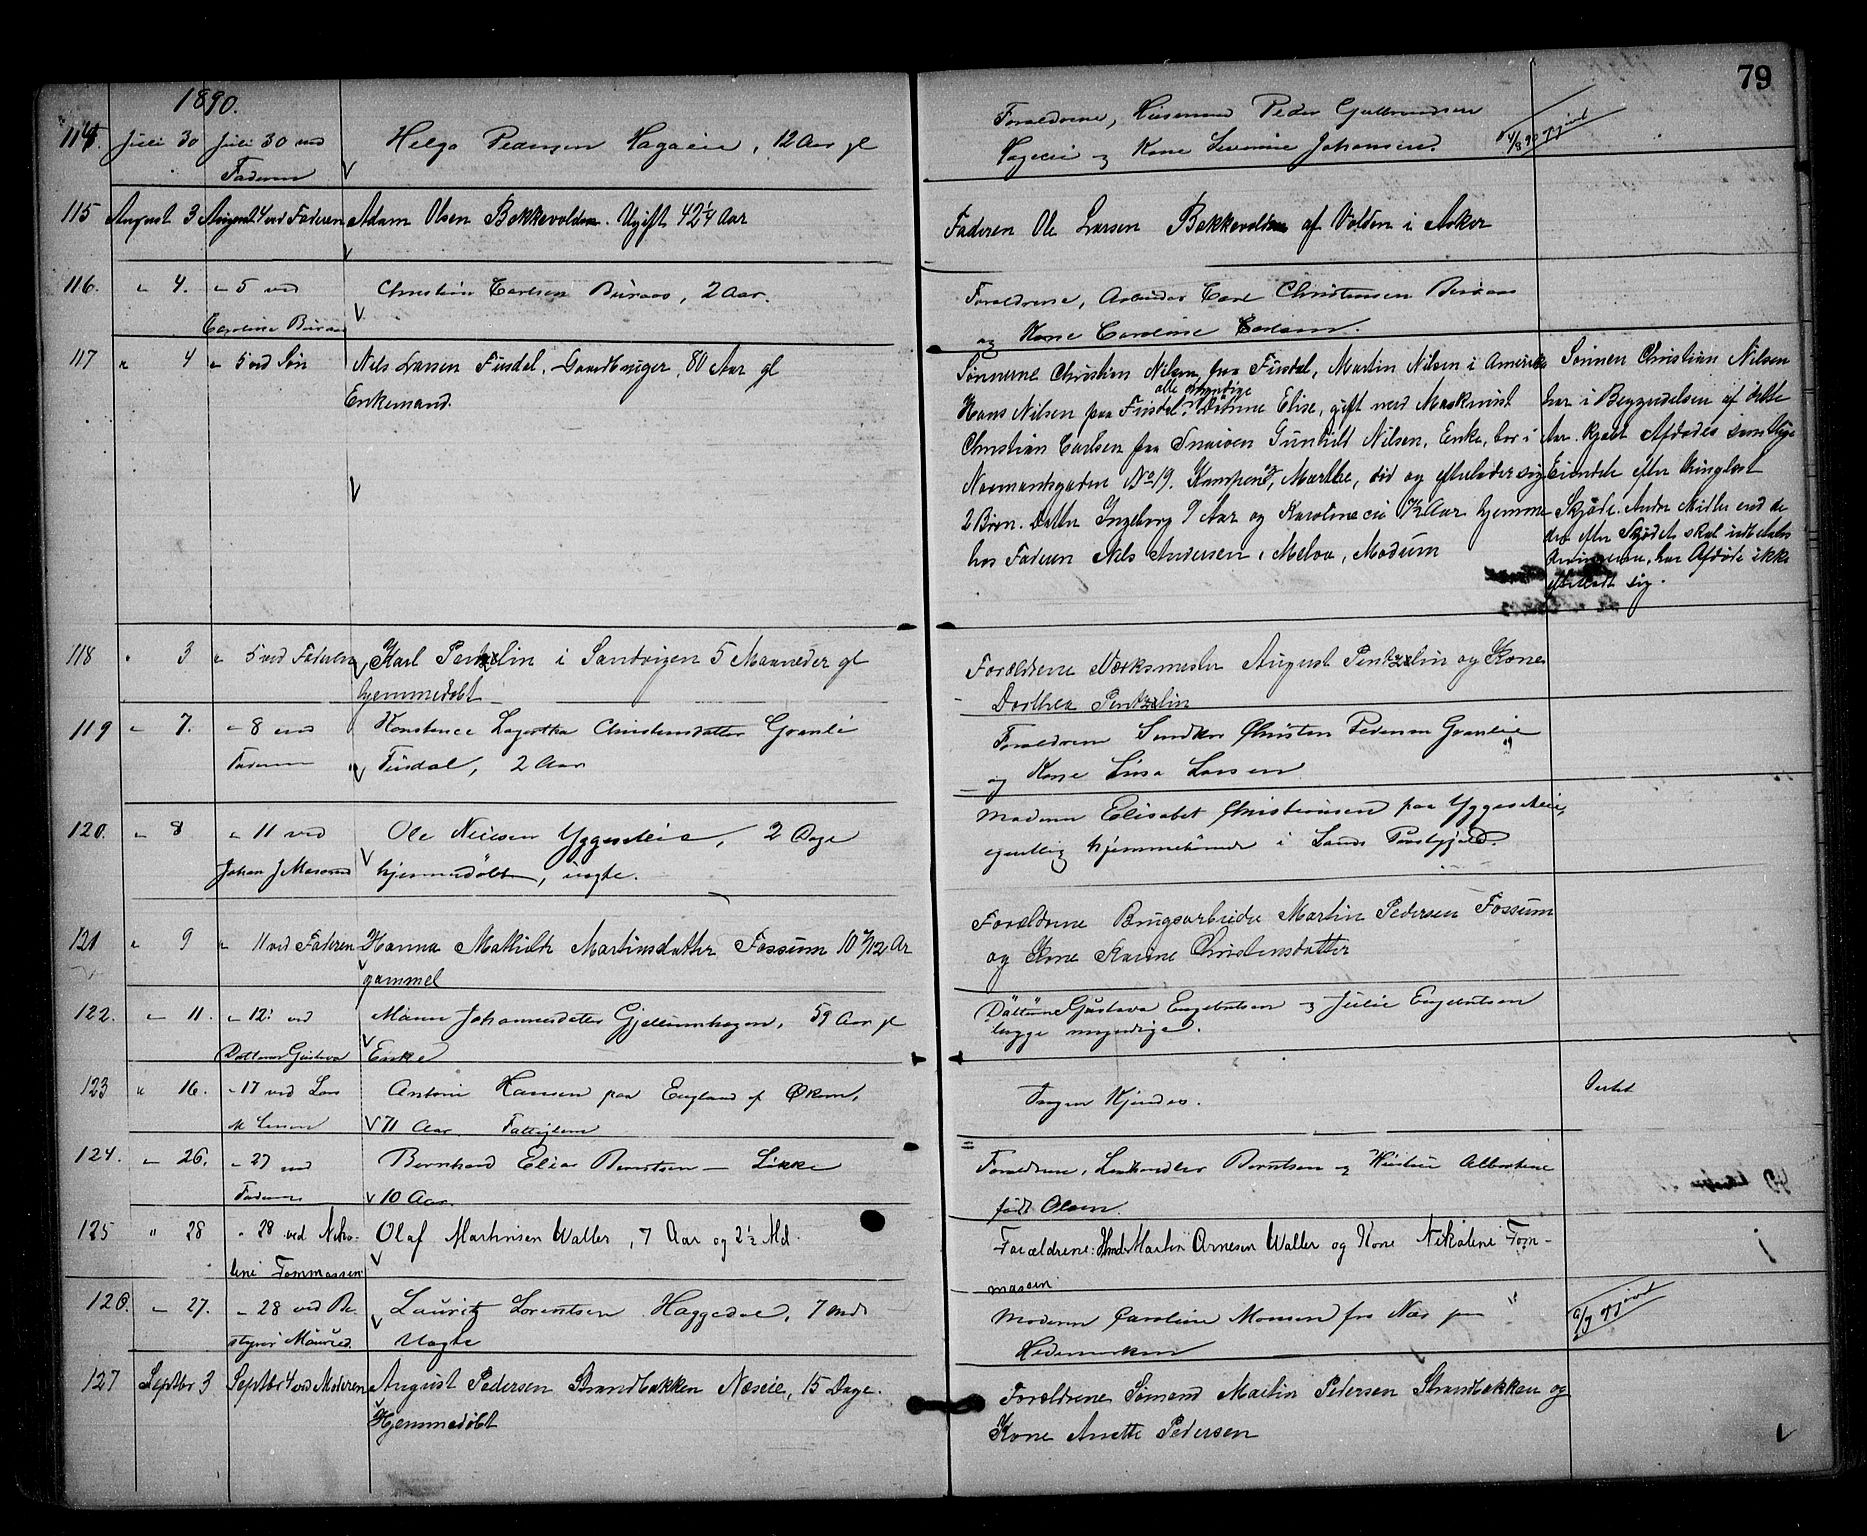 79
1890.
114. Juli 30 Juli 30 ved Helga Pedersen Hagaeie, 12 Aar gl
Faderen
Forældrene, Husmand Peder Gulbrandsen
Hageeie og Kone Severine Johansen.
115 August 3 August 4 ved Faderen Adam Olsen Bekkevolden. Ugift 42 1/4 Aar
Faderen Ole Larsen Bekkevolden af Volden i Asker
116. " 4. " 5 ved Christian Carlsen Buraas, 2 Aar.
Caroline Buraas
Forældrene, Arbeider Carl Christensen Buraas
og Kone Caroline Carlsen.
117 " 4 " 5 ved Søn Nils Larsen Fusdal, Gaardbruger, 80 Aar gl
Enkemand.
Sønnerne Christian Nilsen paa Fusdal, Martin Nilsen i Amerika
alle myndige
Hans Nilsen paa Fusdal. Døttrene Elise, gift med Maskinist
Christian Carlsen paa Gunhild Nilsen, Enke, bor i
Normansgaden No 19. Kampen, og Marthe, død og efterlader sig
2 Børn. Datter Ingeborg 9 Aar og Karoline Aar hjemme
hos Faderen Nils Andersen, Melvo, Modum
Sønnen Christian Nilsen
har i Begyndelsen af dette
Aar kjøbt Afdødes samtlige
Eiendele efter thinglæst
Skjøde. Andre Midler end de
der efter Skjødet skal indbetales
Arvingerne, har Afdøde ikke
efterladt sig.
118 " 3 " 5 ved Faderen Karl Pentzelin i Sandvigen 5 Maaneder gl
hjemmedøbt
Forældrene Værksmester August Pentzelin og Kone
Dorthea Pentzelin
119 " 7. " 8 ved Konstance Lagertha Christensdatter Granlie
Faderen Fusdal, 2 Aar
Forældrene Christen Pedersen Granlie
og Kone Lina Larsen
120. " 8 " 11 ved Ole Nielsen Yggeseteie, 2 Dage
Johan J hjemmedøbt, uægte.
Moderen Elisabet Christiansen paa Yggeseteie,
egentlig hjemmehørende i Lands Prestgjeld.
121 " 9 " 11 ved Faderen Hanna Mathilde Martinsdatter Fossum 10 7/12 Ar
gammel
Forældrene Brugsarbeider Martin Pedersen Fossum
og Kone Karine Christensdatter
122. " 11. " 12. ved Maren Johannesdatter Gjellumhagen, 59 Aar gl
Datteren Gustava Enke
Døttrene Gustava Engebretsen og Julie Engebretsen
begge myndige.
123 " 16. " 17 ved Lars Antoni Hansen paa England af Økern,
M Lersen 71 Aar. Fattiglem
Ingen Kjendes.
124. " 26. " 27 ved Bernhard Elias Berntsen Løkke
Faderen 10 Aar.
Forældrene, Landhandler Berntsen og Hustru Albertine
født Olsen.
125 " 28 " 28 ved Niko- Olaf Martinsen Waller, 7 Aar og 2 1/2 Md.
line Tommassen
Forældrene: Hmd. Martin Arnesen Waller og Kone Nikoline Tom-
masen
126. " 27. " 28 ved Be- Lauritz Lorentsen Haggedal, 7 Mdr
styrer Uægte
Moderen Caroline Monsen fra Næs paa
Hedemarken
127 Septbr 3 Septbr 4 ved Moderen August Pedersen Strandbakken Næseie, 15 Dage.
Hjemmedøbt
Forældrene Sømand Martin Pedersen Strandbakken og
Kone Anette Pedersen